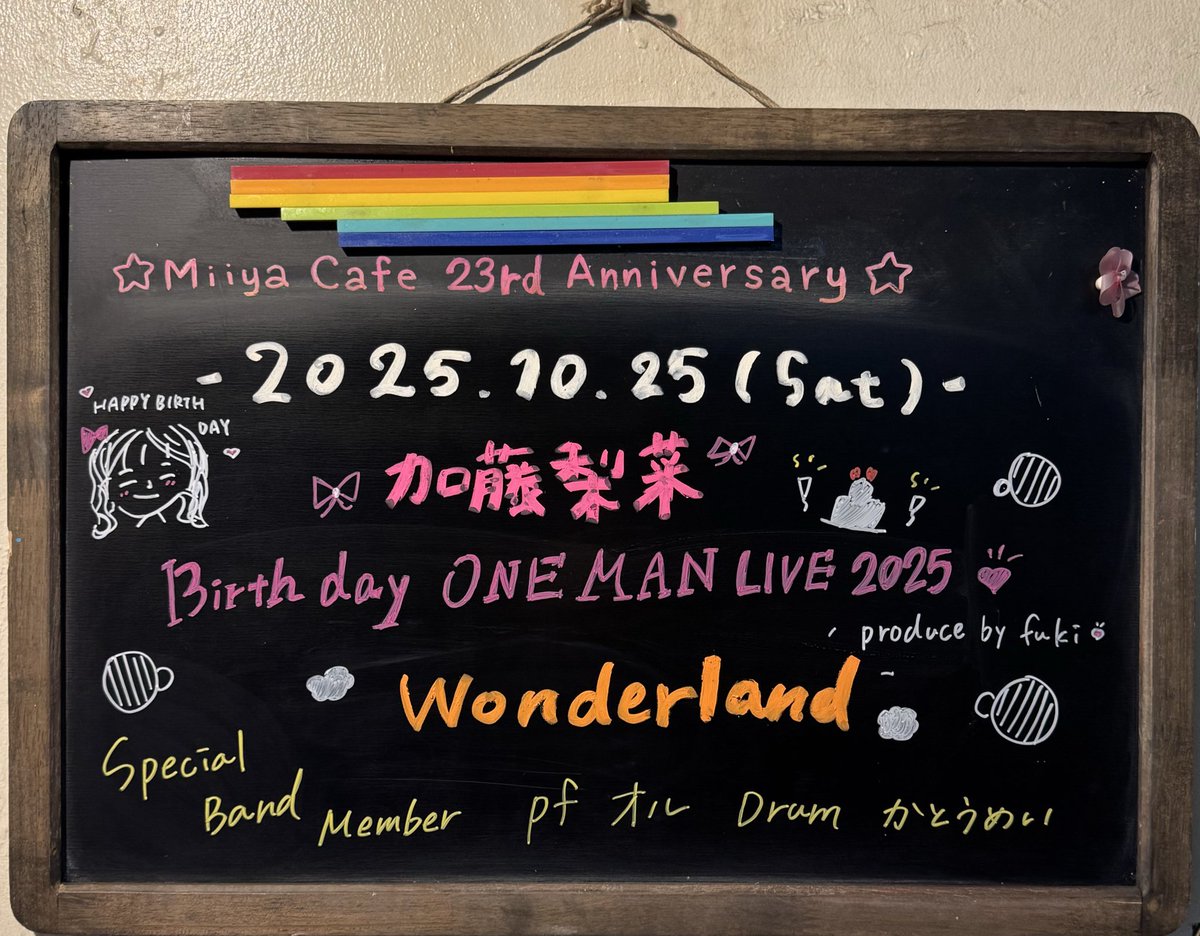 ☆Miiya Cafe 23rd Anniversary☆
-2025.10.25(Sat)-
HAPPY BIRTH
DAY
加藤梨菜
Birthday ONE MAN LIVE 2025
produce by fuki
Wonderland
Special
Band Member pf オル Drum かとうめい